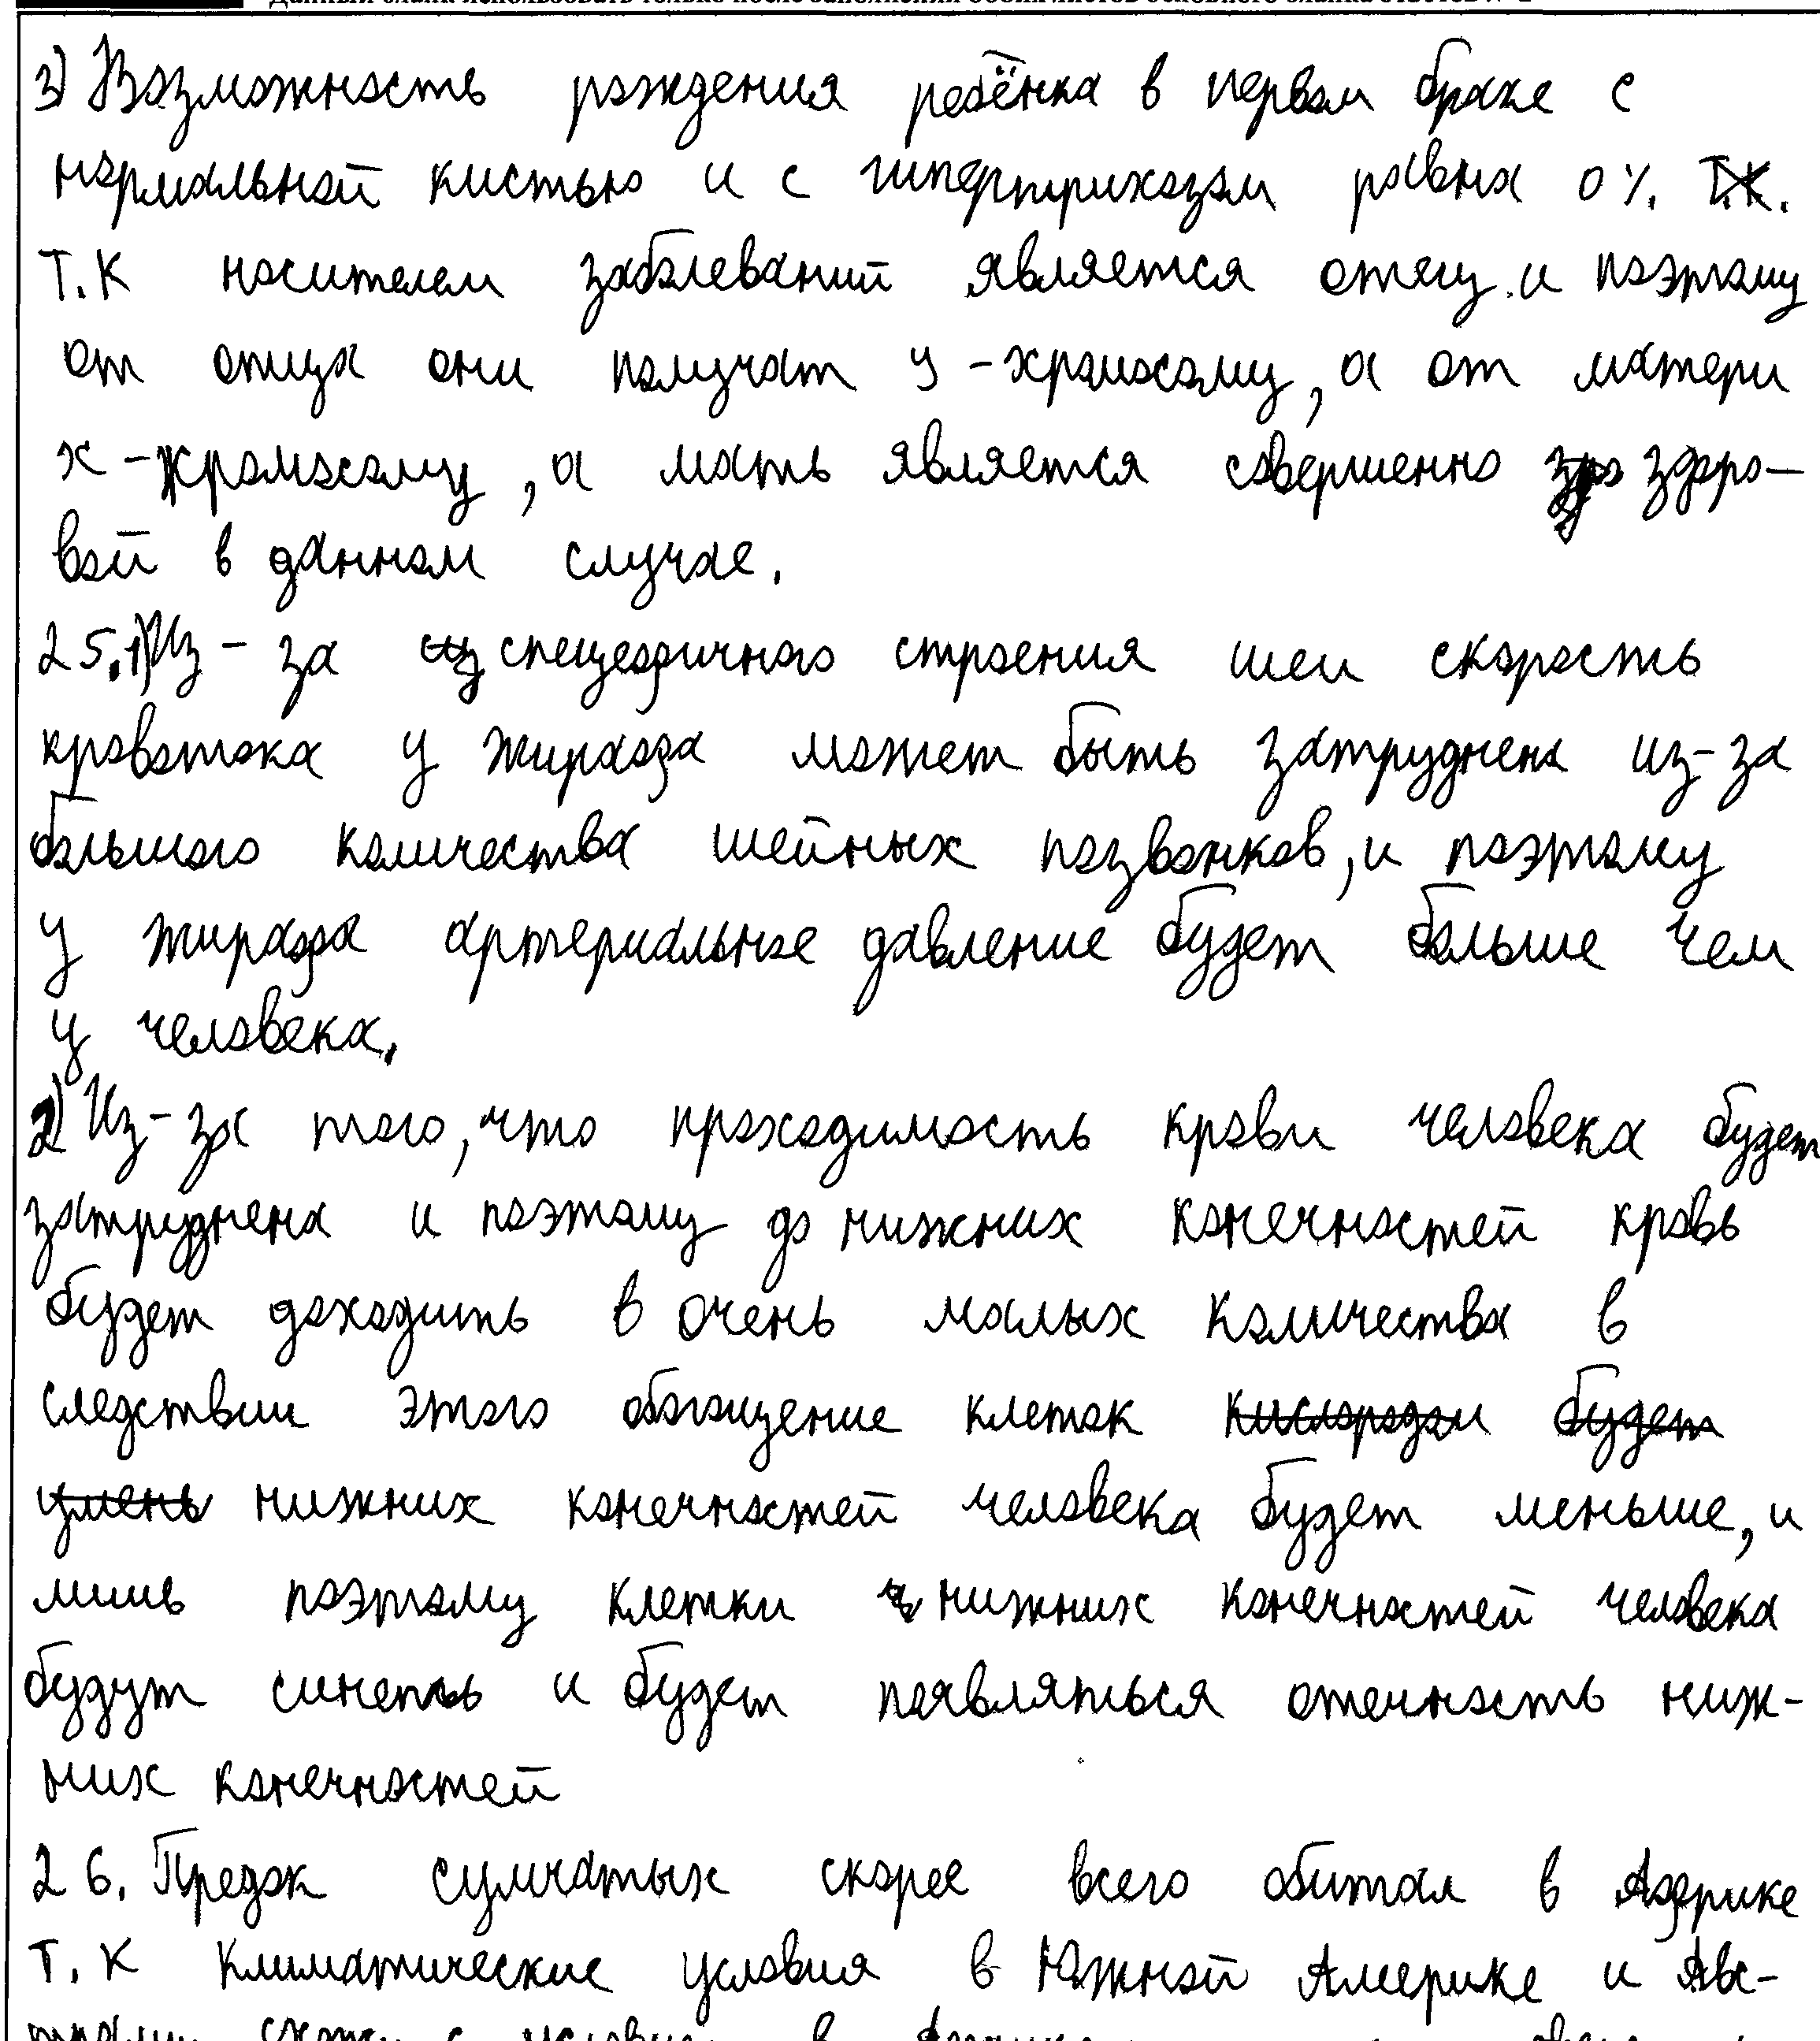 Данный бланк использовать только после заполнения обоих листов основного бланка ответов № 2
3) Возможность рождения ребёнка в первом браке с
нормальной кистью и с гипертрихозом равна 0%. Т.К.
Т.К носителем заболеваний является отец и поэтому
от отца они получат У-хромосому, а от матери
х-хромосому, а мать является совершенно здоро-
вой в данном случае.
25.1) Из-за специфичного строения шеи скорость
кровотока у жирафа может быть затруднена из-за
большого количества шейных позвонков, и поэтому
у жирафа артериальное давление будет больше чем
у человека.
2) Из-за того, что проходимость крови человека будет
затруднена и поэтому до нижних конечностей кровь
будет доходить в очень малых количества в
следствии этого обогащение клеток кислородом будет
умень нижних конечностей человека будет меньше, и
лишь поэтому клетки нижних конечностей человека
будут синеть и будет появляться отечность ниж-
них конечностей
26. Предок сумчатых скорее всего обитал в Африке
Т.К климатические условия в Южной Америке и Авс-